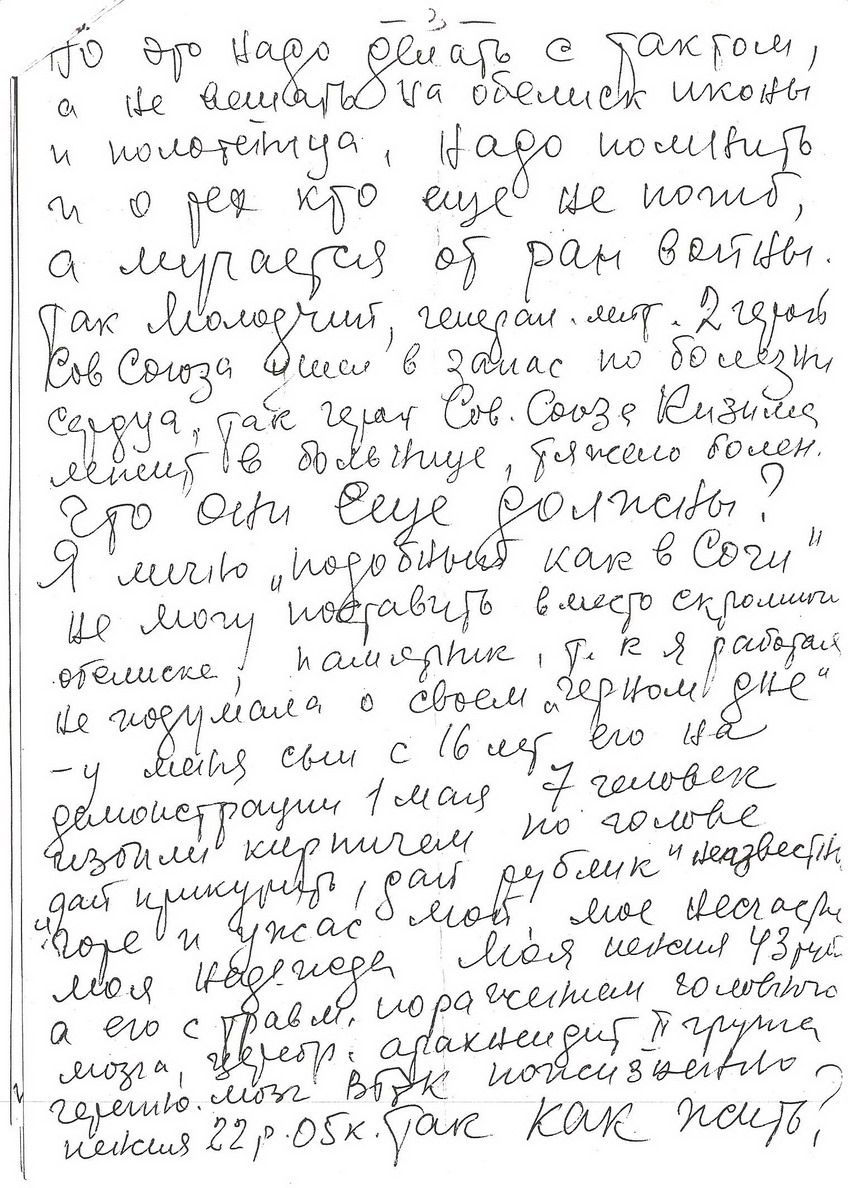 — 3 —
то это надо делать с тактом,
а не вешать на обелиск иконы
и полотенца, надо помнить
и о тех кто еще не погиб,
а мучается от ран войны.
Так Молодчий, генерал. лейт. 2 герой
Сов Союза ушел в запас по болезни
сердца, так герой Сов. Союза Кизима
лежит в больнице, тяжело болен.
Что они еще должны?
Я лично „подобный как в Сочи"
не могу поставить вместо скромного
обелиска, памятник, т. к я работая
не подумала о своем „черном дне"
– у меня сын с 16 лет его на
демонстрации 1 мая 7 человек
избили кирпичем по голове
дай прикурить, дай рублик" неизвестн
"горе и ужас мой, мое несчастье
моя надежда моя пенсия 43 руб
а его с травм. поражением головного
мозга, церебр. арахноидит II группа
черепно. мозг ВТЭК пожизненно
пенсия 22 р. 05 к. Так как жить?